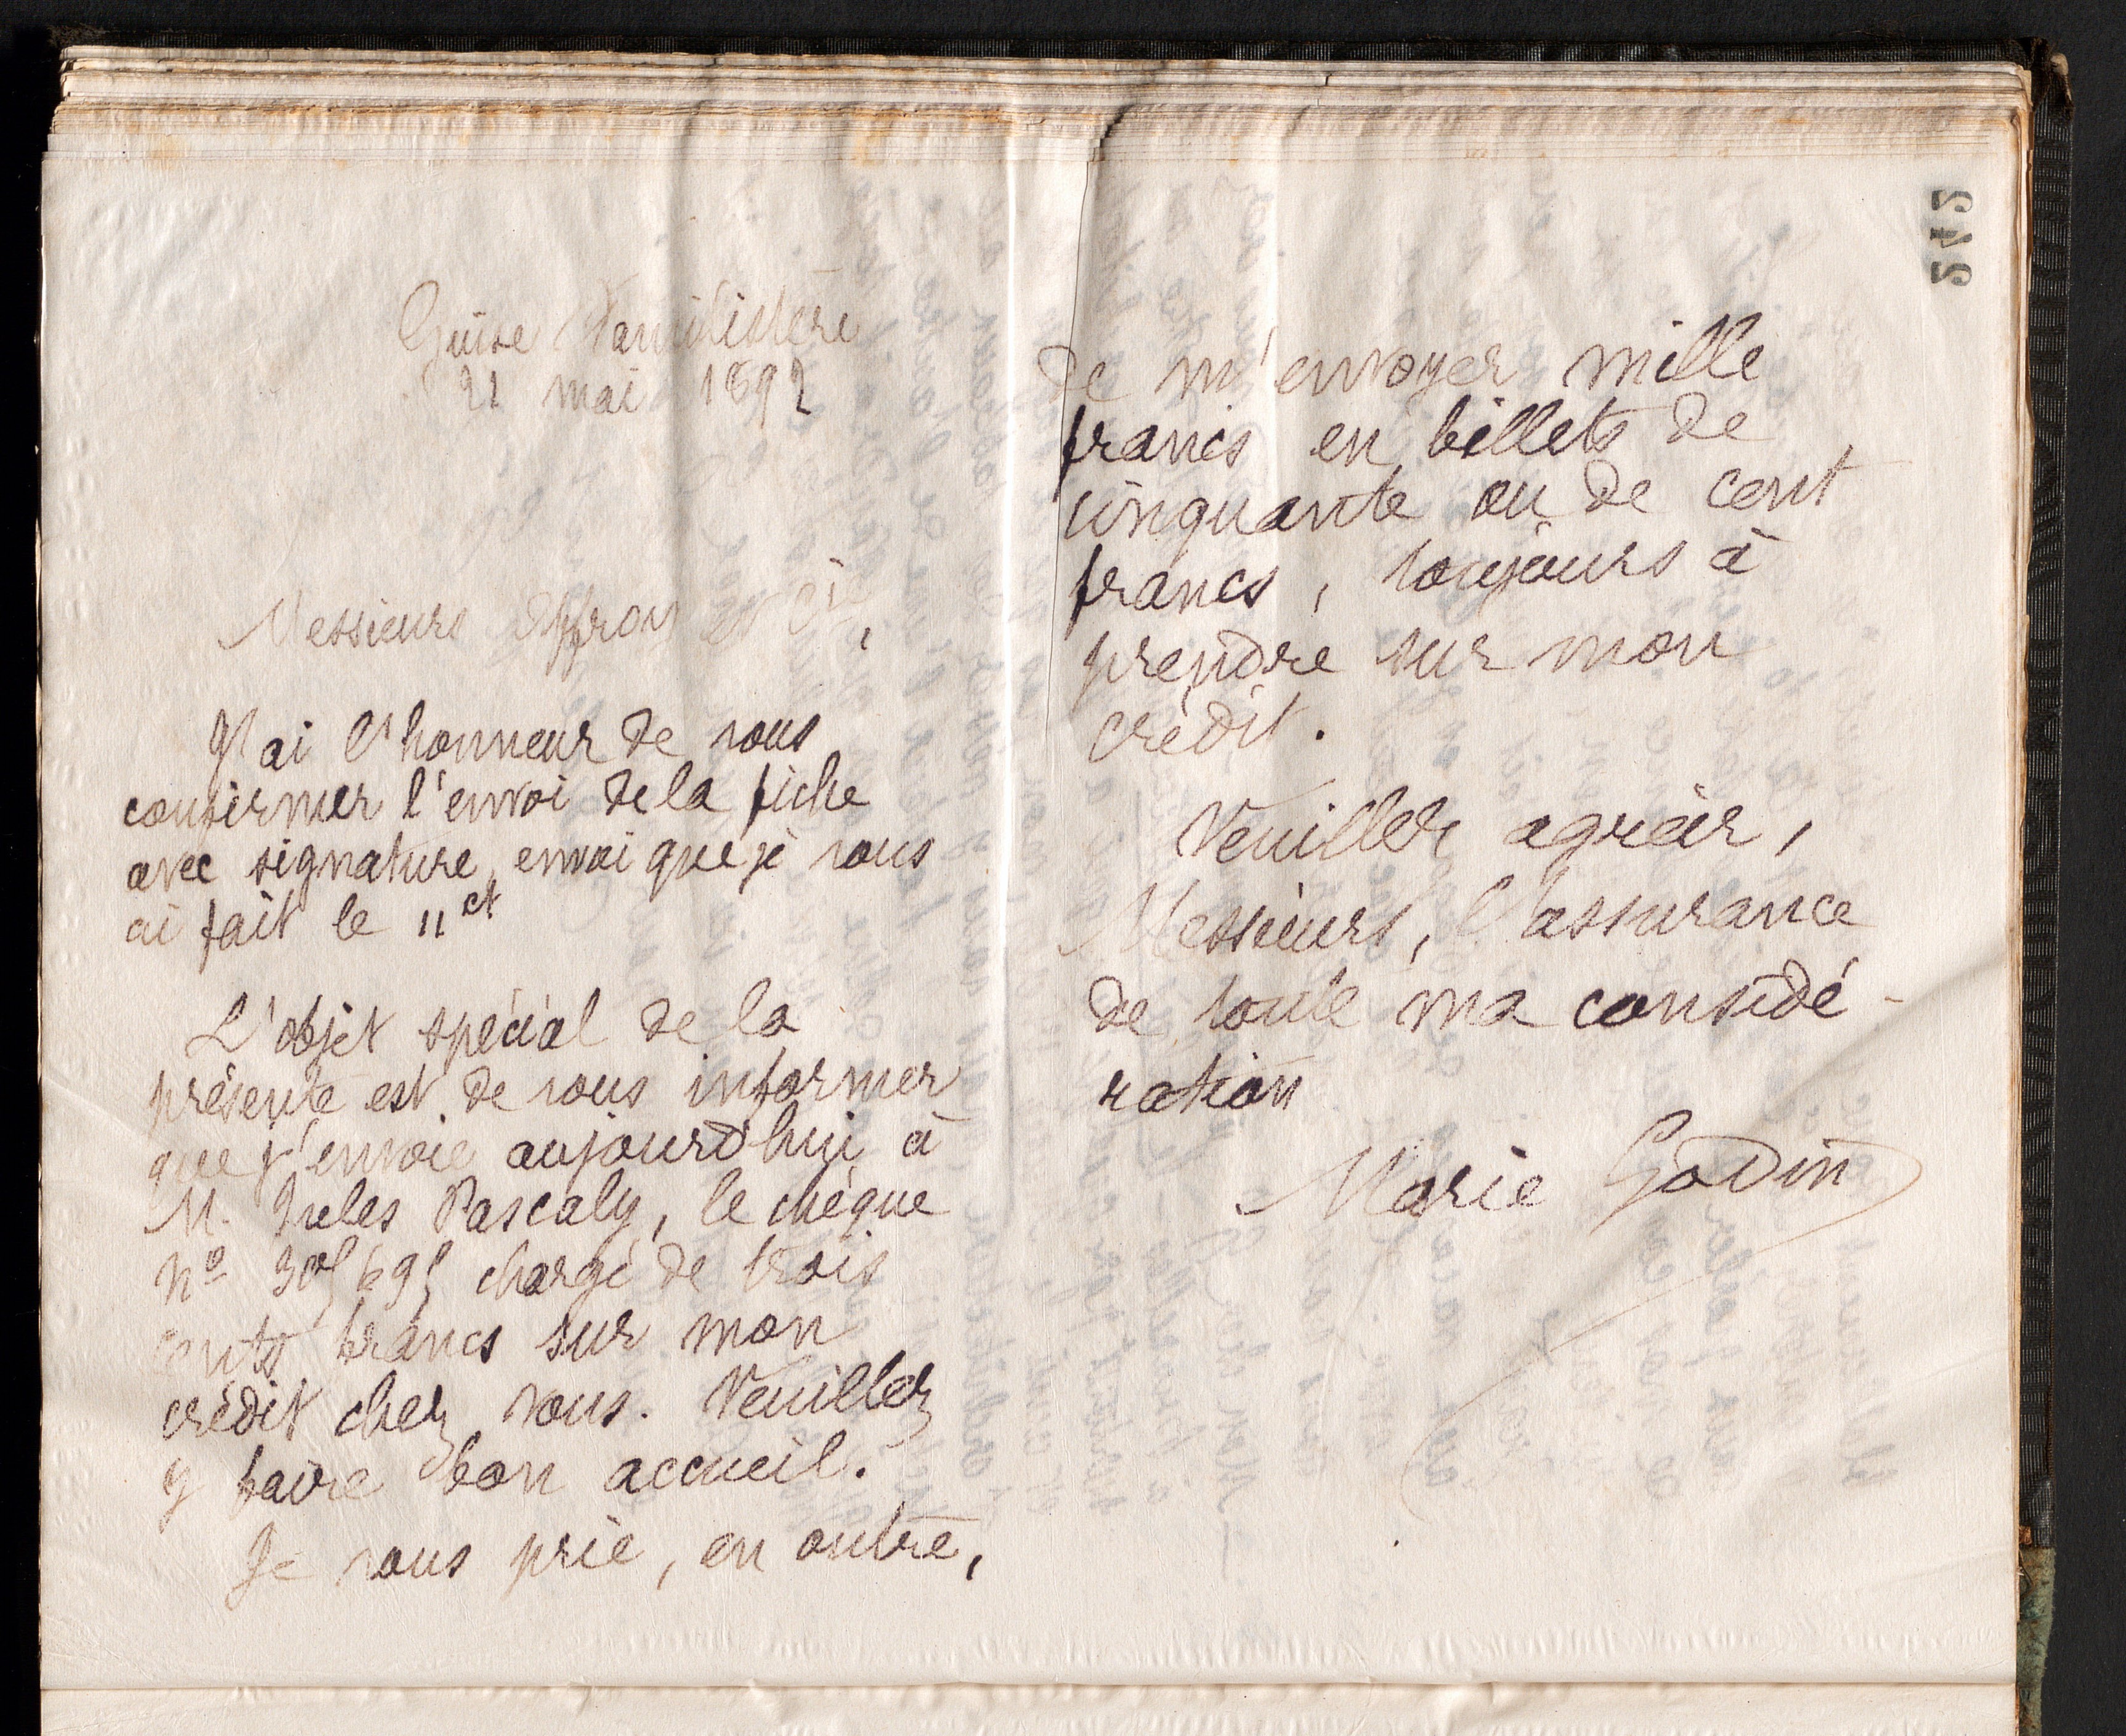 Guise Familistère
21 mai 1892
Messieurs Effroy et Cie,
J'ai l'honneur de vous
confirmer l'envoi de la fiche
avec signature, envoi que je vous
ai fait le 11 ct
L'objet spécial de la
présente est de vous informer
que j'envoie aujourd'hui à
M. Jules Pascaly, le chèque
No chargé de trois
cents francs sur mon
crédit chez vous. Veuillez
y faire bon accueil.
Je vous prie, en outre,
de m'envoyer mille
francs en billets de
cinquante ou de cent
francs, toujours à
prendre sur mon
crédit.
Veuillez agréer,
Messieurs, l'assurance
de toute ma considé-
ration
Marie Godin